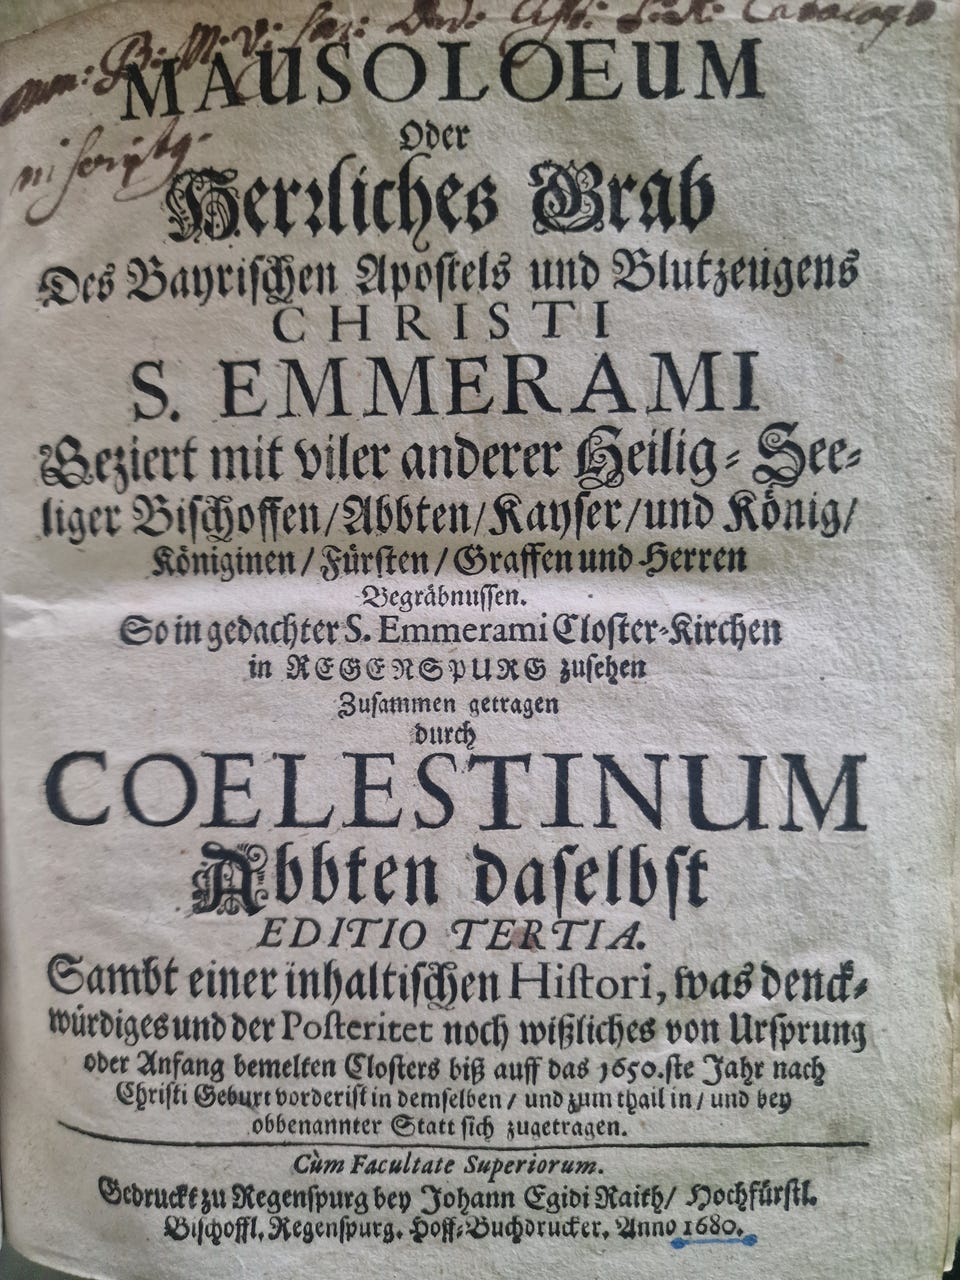 MAUSOLOEUM
Oder
Herrliches Grab
Des Bayrischen Apostels und Blutzeugens
CHRISTI
S. EMMERAMI
Geziert mit viler anderer Heilig-See-
liger Bischoffen/Abbten/Kayser/und König/
Königinen/Fürsten/Graffen und Herren
Begräbnussen.
So in gedachter S. Emmerami Closter-Kirchen
in REGENSPURG zusehen
Zusammen getragen
durch
COELESTINUM
Abbten daselbst
EDITIO TERTIA.
Sambt einer inhaltischen Histori, was denck-
würdiges und der Posteritet noch wißliches von Ursprung
oder Anfang bemelten Closters biß auff das 1650.ste Jahr nach
Christi Geburt vorderist in demselben/und zum thail in/und bey
obbenannter Statt sich zugetragen.
Cùm Facultate Superiorum.
Gedruckt zu Regenspurg bey Johann Egidi Raith/Hochfürstl.
Bischoffl. Regenspurg. Hoff-Buchdrucker. Anno 1680.